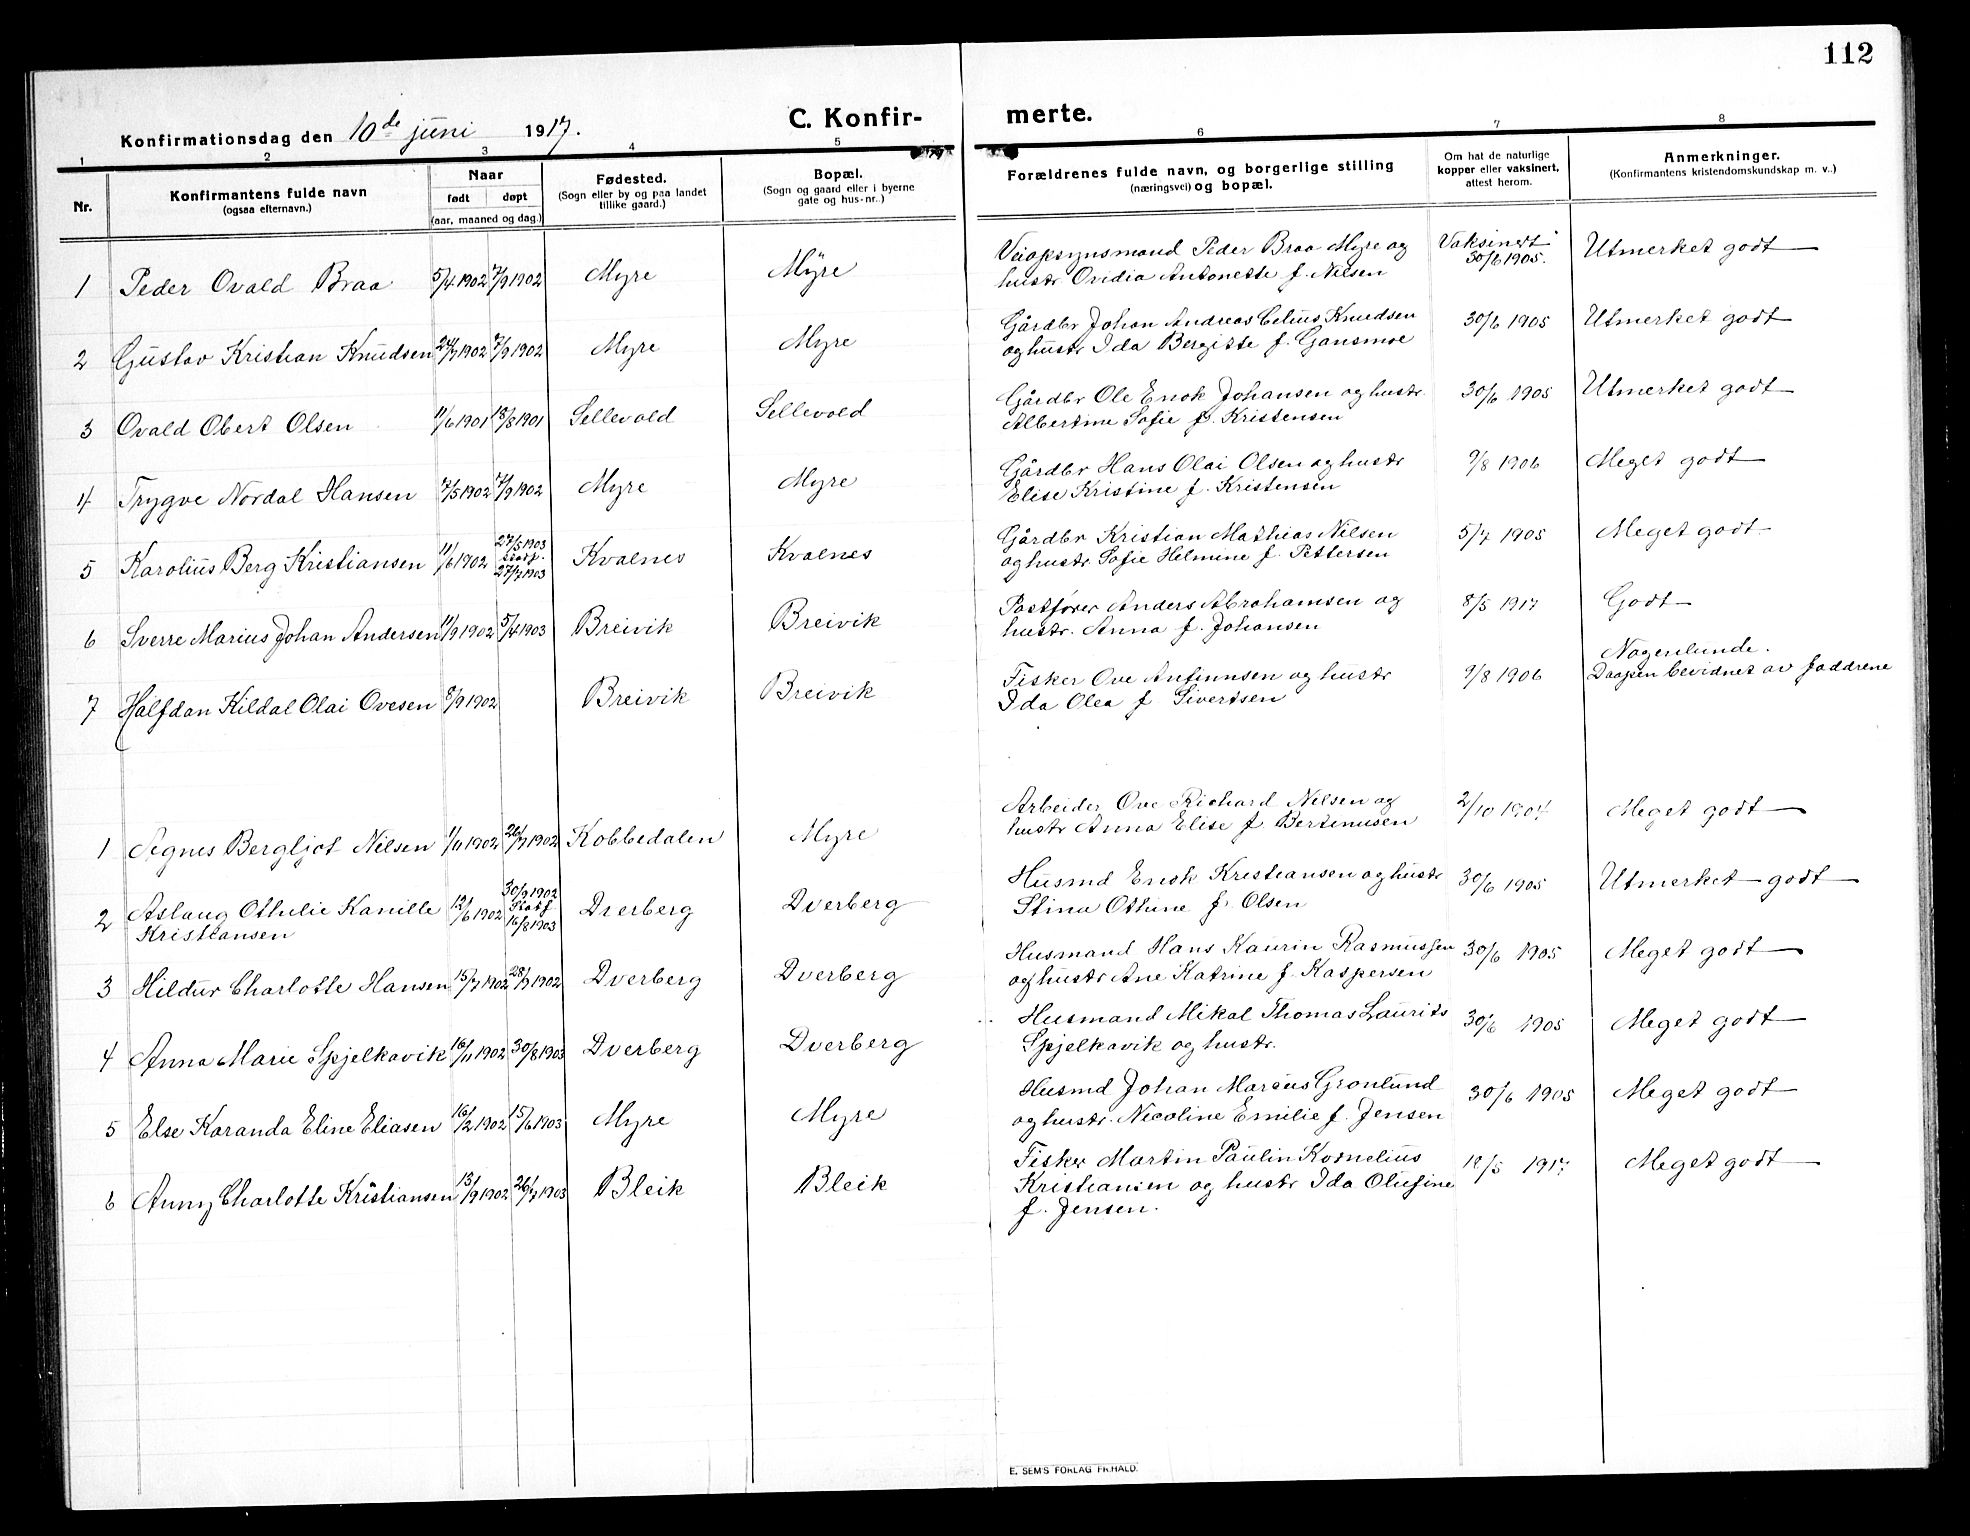 112
Konfirmationsdag den 10de juni 1917. C. Konfir- merte.
1 2 3 4 5 6 7 8
Nr. Konfirmantens fulde navn (ogsaa efternavn.) Naar født døpt (aar, maaned og dag.) Fødested. (Sogn eller by og paa landet tillike gaard.) Bopæl. (Sogn og gaard eller i byerne gate og hus-nr..) Forældrenes fulde navn, og borgerlige stilling (næringsvei) og bopæl. Om hat de naturlige kopper eller vaksinert, attest herom. Anmerkninger. (Konfirmantens kristendomskundskap m. v..)
1 Peder Ovald Braa 5/4 1902 7/9 1902 Myre Myre Veiopsynsmand Peder Braa Myre og hustr Ovidia Antonette f. Nilsen Vaksinert 30/6 1905. Utmerket godt
2 Gustav Kristian Knudsen 24/7 1902 7/9 1902 Myre Myre Gårdbr Johan Andreas Celius Knudsen og hustr Ida Bergitte f. Gansmoe 30/6 1905 Utmerket godt
3 Ovald Obert Olsen 11/6 1901 18/8 1901 Sellevold Sellevold Gårdbr Ole Enok Johansen og hustr. Albertine Sofie f. Kristensen 30/6 1905 Utmerket godt
4 Trygve Nordal Hansen 7/5 1902 7/9 1902 Myre Myre Gårdbr Hans Olai Olsen og hustr Elise Kristine f. Kristensen 9/8 1906 Meget godt
5 Karolius Berg Kristiansen 11/6 1902 27/5 1903 Stadf. 27/7 1903 Kvalnes Kvalnes Gårdbr Kristian Mathias Nilsen og hustr. Sofie Helmine f. Pettersen 5/7 1905 Meget godt
6 Sverre Marius Johan Andersen 11/9 1902 5/4 1903 Breivik Breivik Postfører Anders Abrahamsen og hustr. Anna f. Johansen 8/5 1917 Godt
7 Halfdan Kildal Olai Ovesen 8/9 1902 Breivik Breivik Fisker Ove Antinnsen og hustr Ida Olea f Sivertsen 9/8 1906 Nogenlunde. Daapen bevidnet av faddrene
1 Agnes Bergljot Nilsen 1/11 1902 26/7 1902 Kobbedalen Myre Arbeider Ove Richard Nilsen og hustr Anna Elise f. Bertinusen 2/10 1907. Meget godt
2 Aslaug Othilie Kamille Kristiansen 12/6 1902 30/9 1902 Stadf 16/8 1903 Dverberg Dverberg Husmd Enok Kristiansen og hustr Stina Othine f. Olsen 30/6 1905 Utmerket godt
3 Hildur Charlotte Hansen 15/7 1902 28/9 1902 Dverberg Dverberg Husmand Hans Kaurin Rasmussen og hustr Ane Katrine f. Kaspersen 30/6 1905 Meget godt
4 Anna Marie Spjelkavik 16/11 1902 30/8 1903 Dverberg Dverberg Husmand Mikal Thomas Laurits Spjelkavik og hustr. 30/6 1905 Meget godt
5 Else Karanda Eline Eliasen 16/2 1902 15/6 1903 Myre Myre Husmd Johan Marcus Grønlund og hustr. Nicoline Emilie f. Jensen 30/6 1905 Meget godt
6 Anny Charlotte Kristiansen 13/9 1902 26/7 1903 Bleik Bleik Fisker Martin Paulin Kornelius Kristiansen og hustr Ida Olufine f. Jensen. 12/5 1917. Meget godt
E. SEM'S FORLAG FR.HALD.